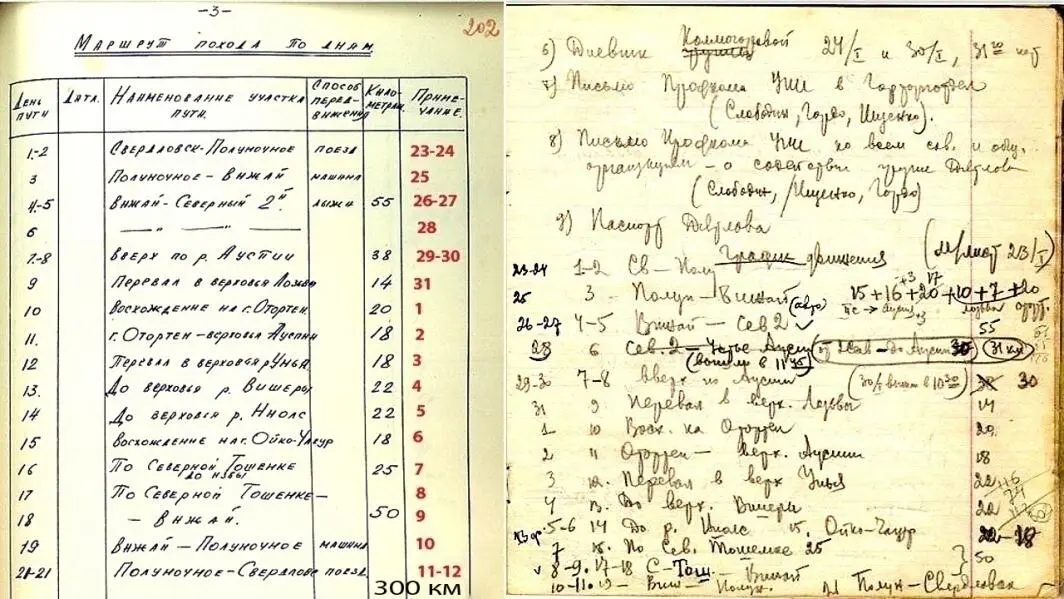 —3—
202
Маршрут похода по дням
День пути Дата. Наименование участка пути. Способ передвижения Километраж. Примечание.
1-2 Свердловск-Полуночное поезд 23-24
3 Полуночное-Вижай машина 25
4-5 Вижай-Северный 2й лыжи 55 26-27
6 — " — " — 28
7-8 Вверх по р. Ауспии 38 29-30
9 Перевал в верховья Лозьвы 14 31
10 Восхождение на г. Отортен 20 1
11 г. Отортен-верховья Ауспии 18 2
12 Перевал в верховья р. Унья 18 3
13. До верховья р. Вишеры 22 4
14 До верховья р. Ниолс 22 5
15 Восхождение на г. Ойко-Чакур 18 6
16 По Северной Тошенке до избы 25 7
17 По Северной Тошенке- 8
18 - Вижай. 50 9
19 Вижай-Полуночное машина 10
20-21 Полуночное-Свердловс поезд 11-12
300 км
6) Дневник Колмогоровой 24/I и 30/I, 31
7) Письмо Профкома УПИ в Гор
(Слободин, Гордо, Ищенко).
8) Письмо Профкома УПИ ко всем сов. и общ.
организациям - о содействии группе Дятлова
(Слободин, Ищенко, Гордо)
9) Паспорт Дятлова
График движения (м/лист 23/I)
23-24 1-2 Св-Полу
25 3 Полун-Вижай (авто) 15+16+20+10+7+20
26-27 4-5 Вижай-Сев 2 55
28 6 Сев. 2-Устье Ауспии (вышли в 11 45) 30 31 км
29-30 7-8 вверх по Ауспии (30/I вышли в 10 30) 38 30
31 9 Перевал в верх. Лозьвы 14
1 10 Восх. на Отортен 20
2 11 Отортен - верх. Ауспии 18
3 12. Перевал в верх Унья 22
4 13. До верх. Вишеры 22
5-6 14 До р. Ниолс 15. Ойко-Чакур 22-18
7 16. По Сев. Тошемке 25
8-9. 17-18 С-Тош. - Вижай 50
10-11. 19- Виж- Полун. 21 Полун-Свердловск